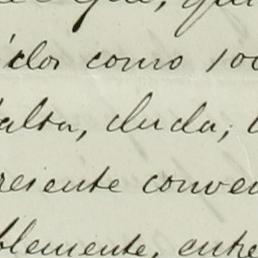 que, qu
dos como 100
alta, duda,
resente conve
blemente, entre